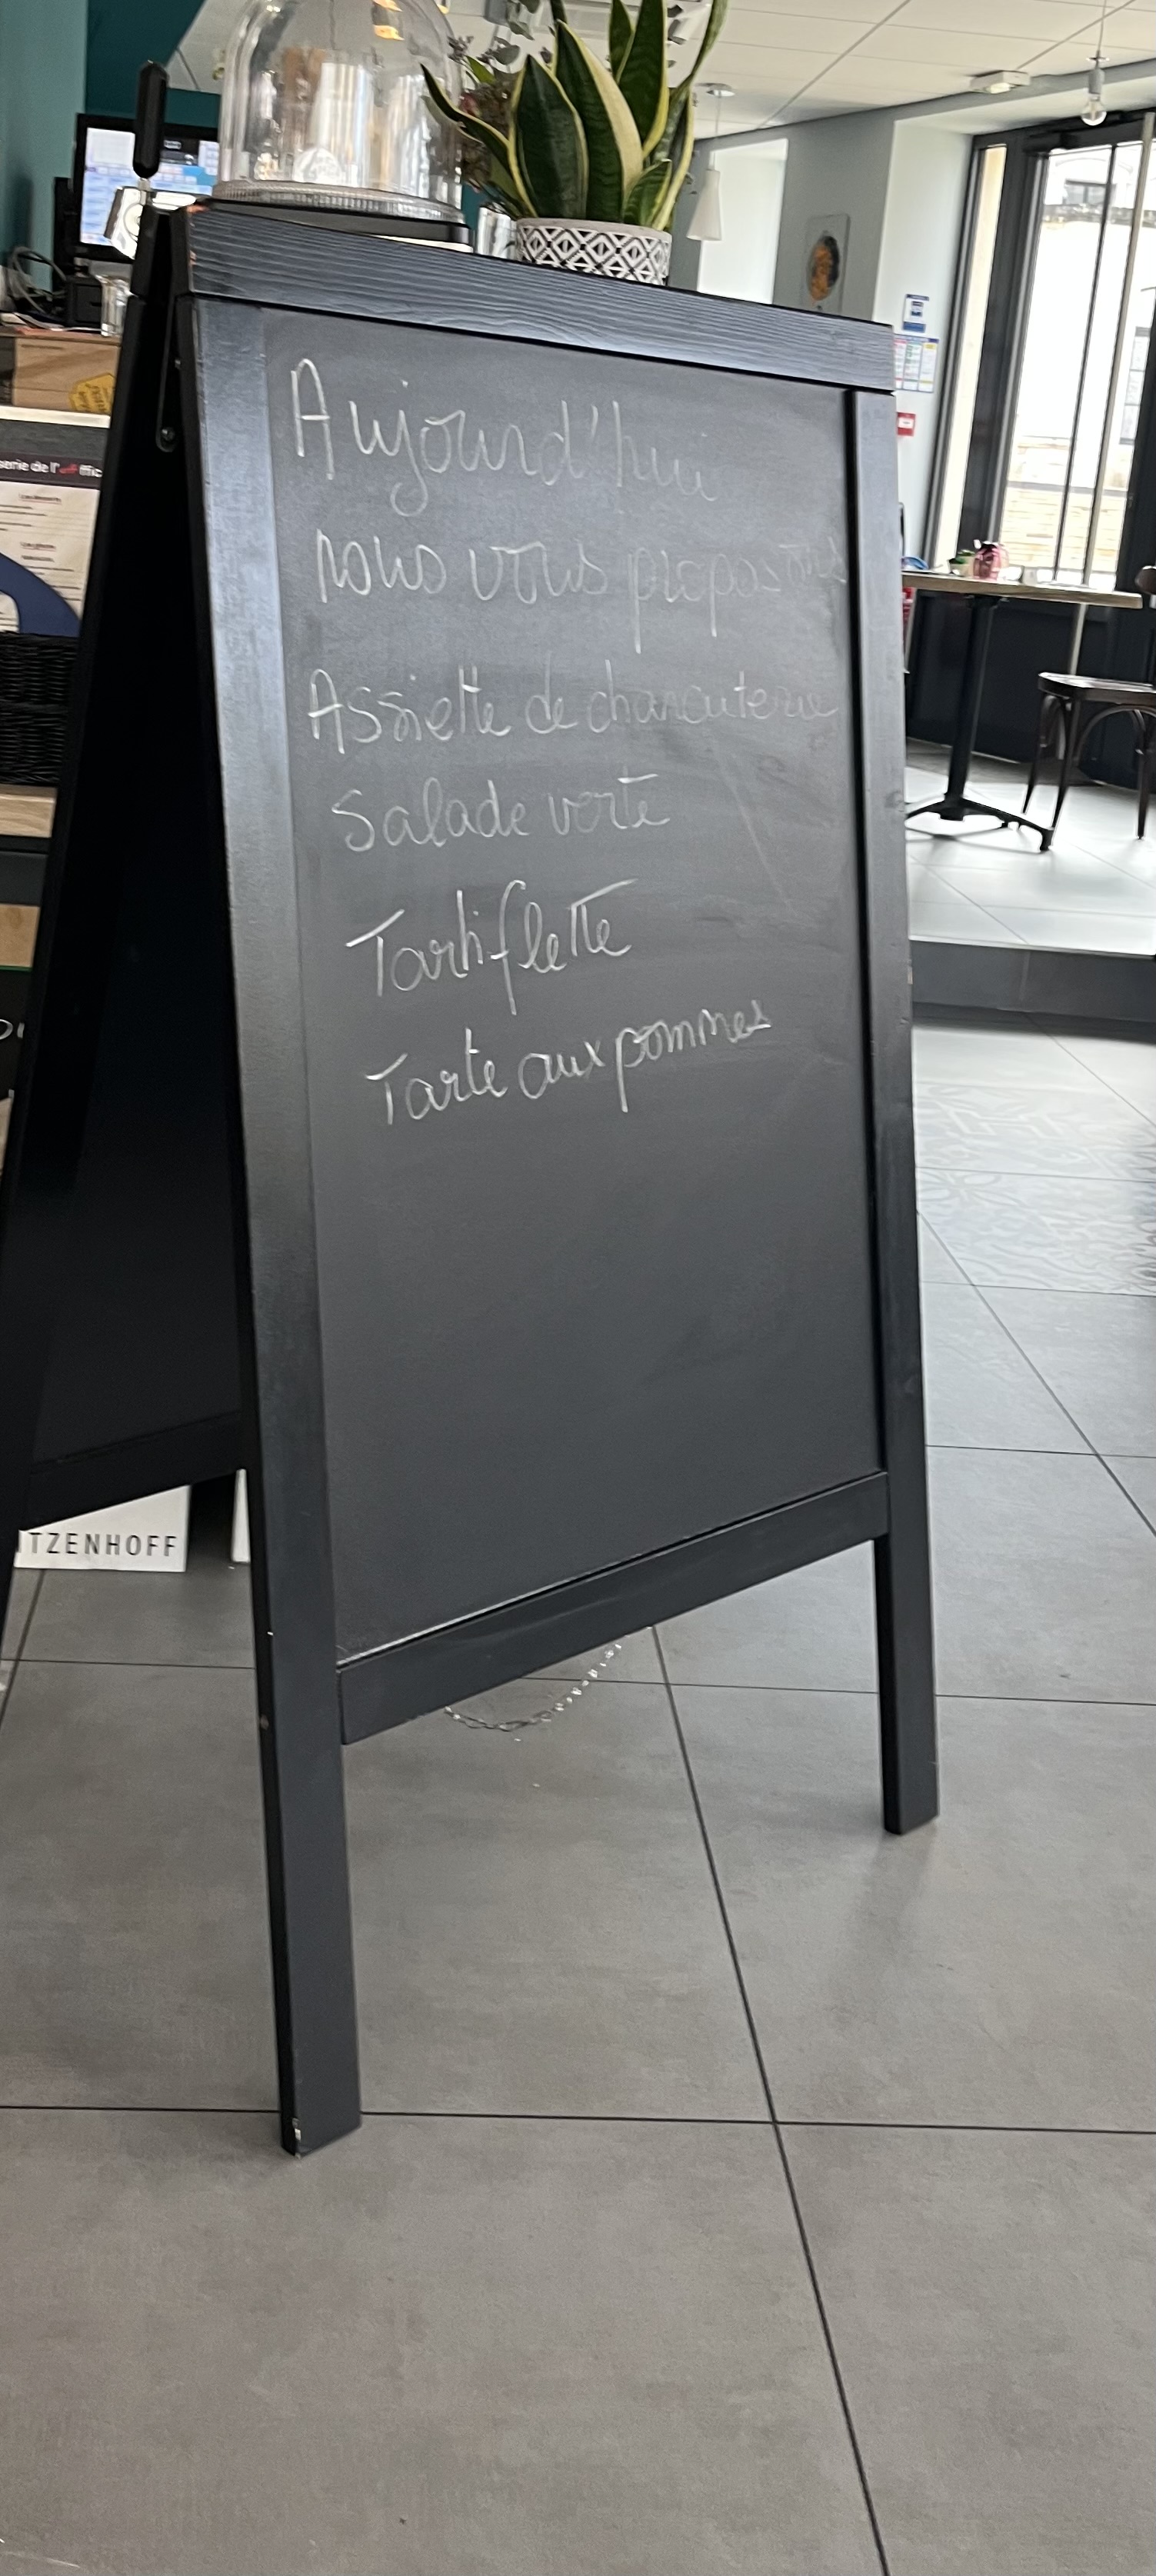 Aujourd'hui
nous vous proposons
Assiette de charcuterie
Salade verte
Tartiflette
Tarte aux pommes
serie de l'
TZENHOFF